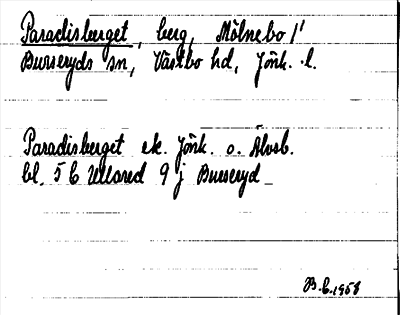 Paradisberget, berg, Mölnebo 1/1
Burseryds sn, Västbo hd, Jönk. l.
Paradisberget ek. Jönk. o. Älvsb.
bl. 5 C Ullared 9 j Burseryd
B.C. 1958